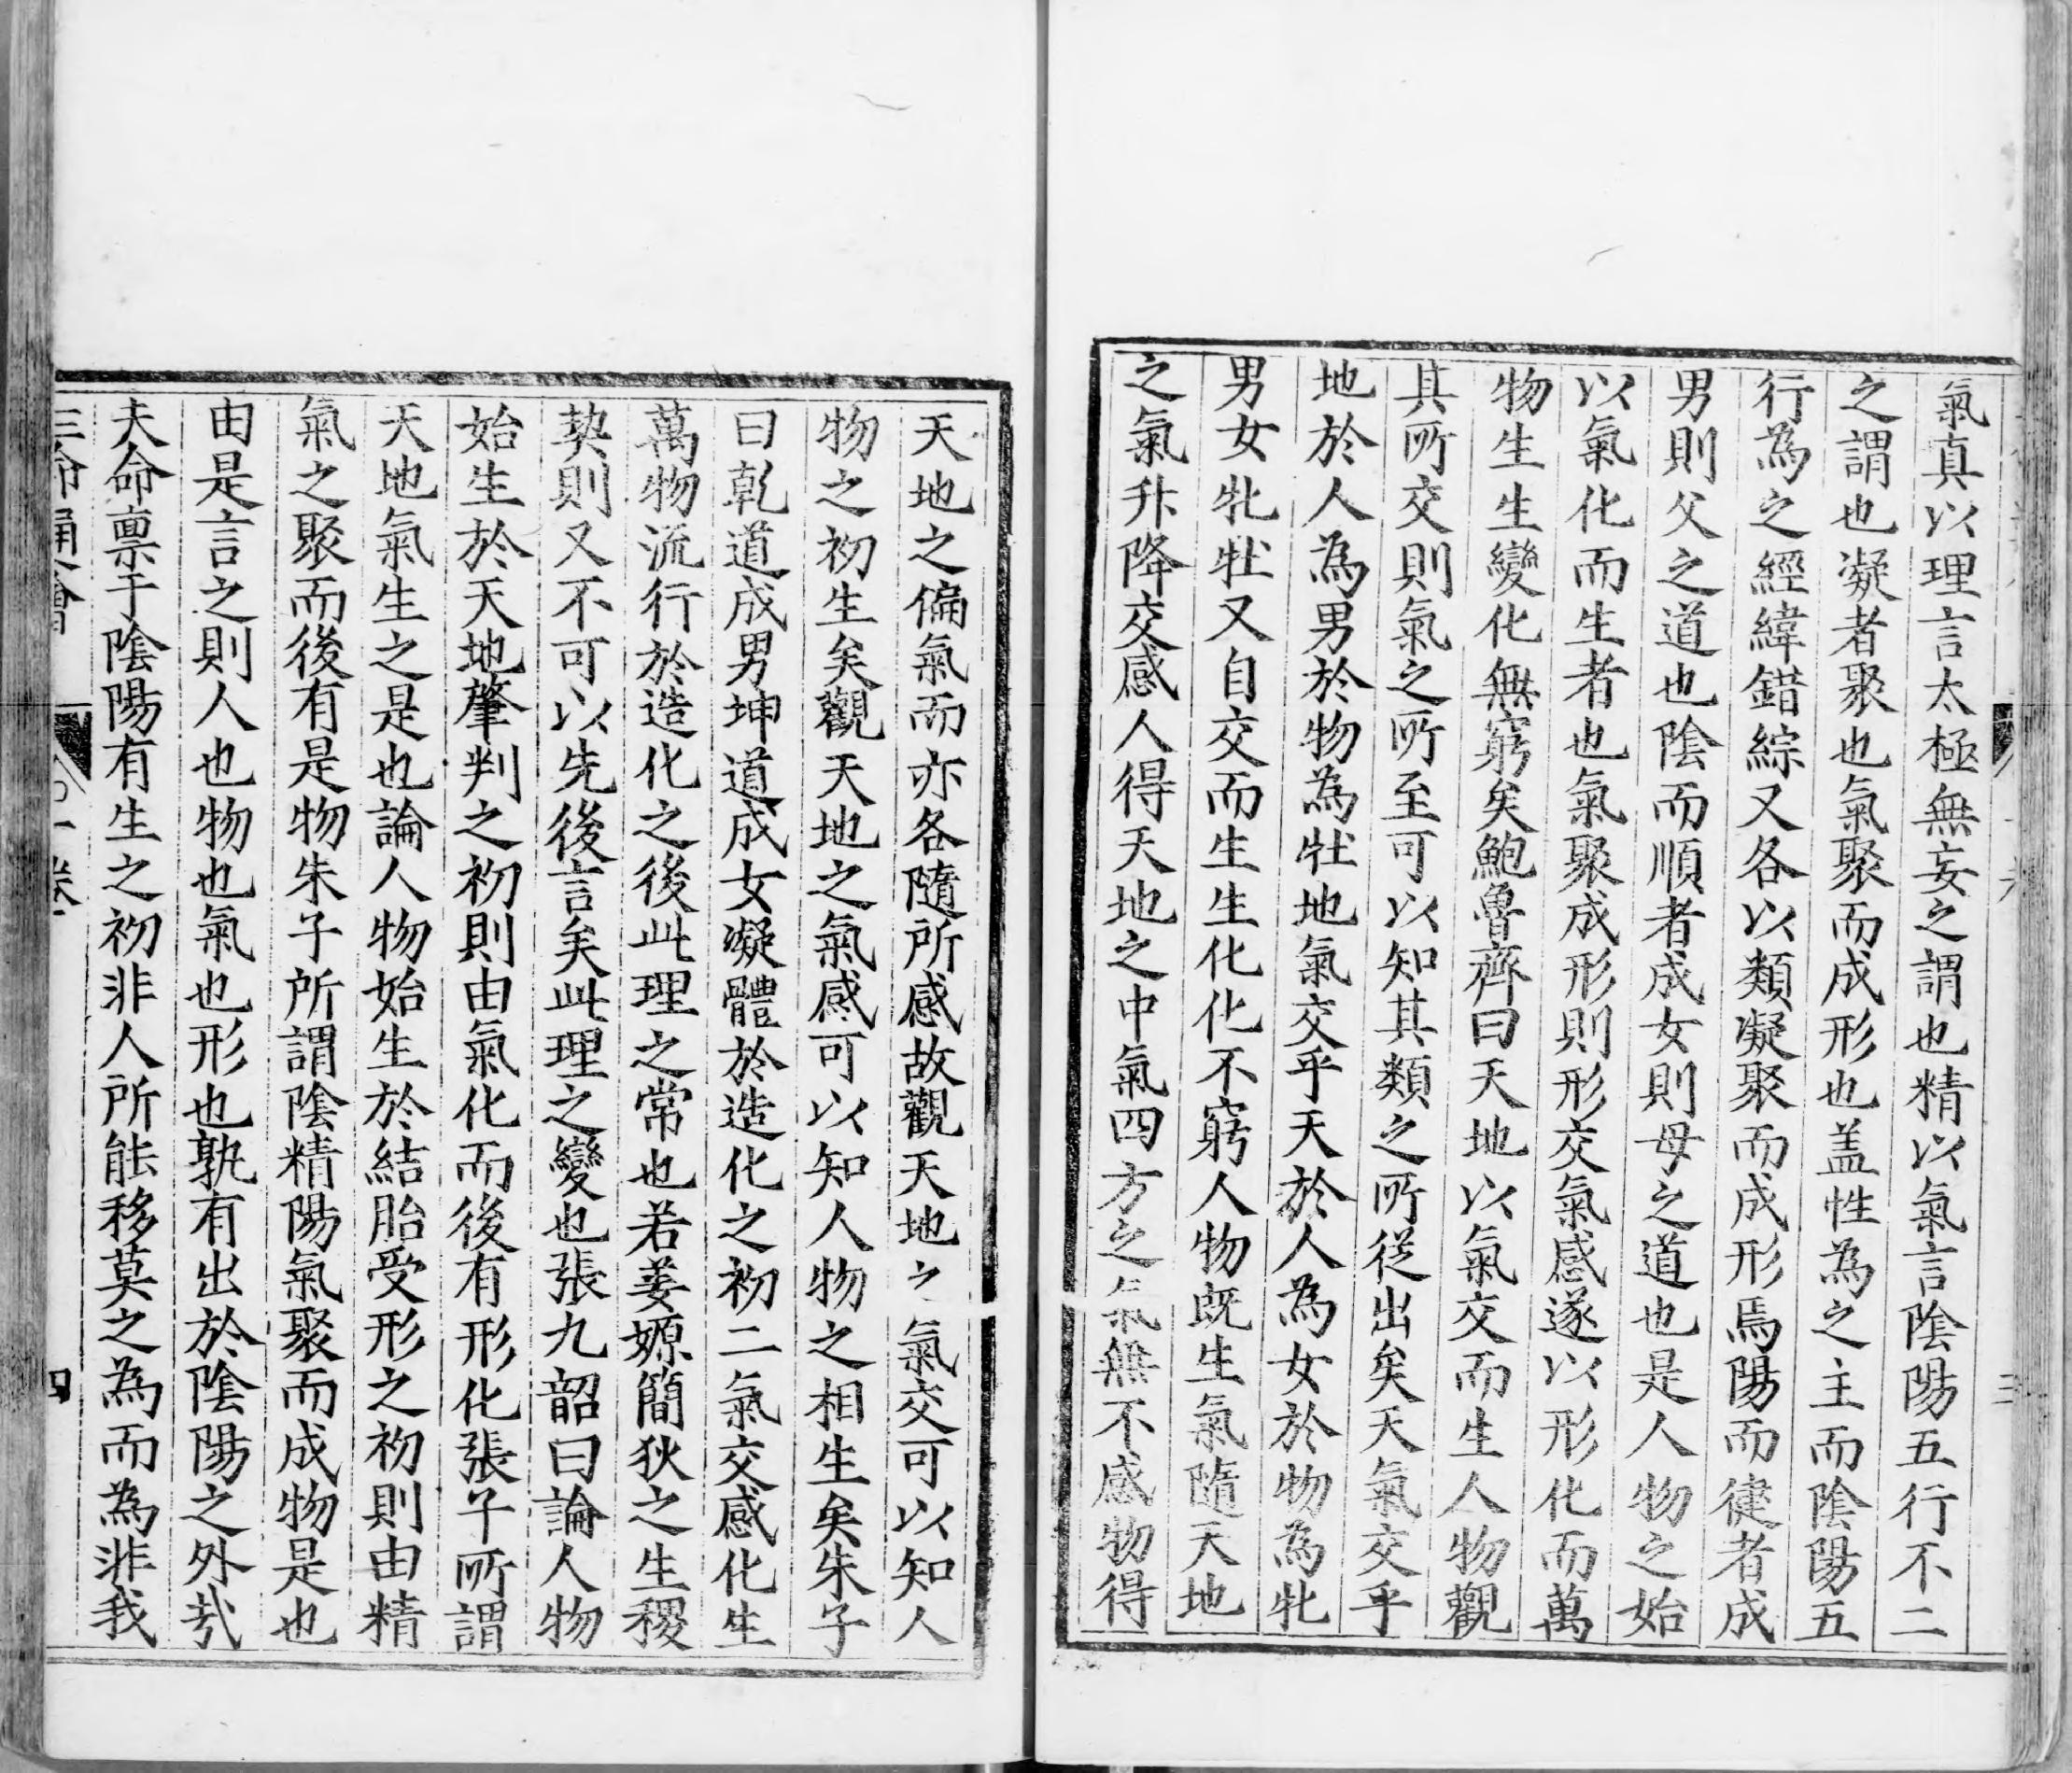 氣真以理言太極無妄之謂也精以氣言陰陽五行不二
之謂也凝者聚也氣聚而成形也盖性為之主而陰陽五
行為之經緯錯綜又各以類凝聚而成形焉陽而健者成
男則父之道也陰而順者成女則母之道也是人物之始
以氣化而生者也氣聚成形則形交氣感遂以形化而萬
物生生變化無窮矣鮑魯齊曰天地以氣交而生人物觀
其所交則氣之所至可以知其類之所從出矣天氣交乎
地於人為男於物為牡地氣交乎天於人為女於物為牝
男女牝牡又自交而生生化化不窮人物既生氣隨天地
之氣升降交感人得天地之中氣四方之氣無不感物得
天地之偏氣而亦各隨所感故觀天地之氣交可以知人
物之初生矣觀天地之氣感可以知人物之相生矣朱子
曰乾道成男坤道成女凝體於造化之初二氣交感化生
萬物流行於造化之後此理之常也若姜嫄簡狄之生稷
契則又不可以先後言矣此理之變也張九韶曰論人物
始生於天地肇判之初則由氣化而後有形化張子所謂
天地氣生之是也論人物始生於結胎受形之初則由精
氣之聚而後有是物朱子所謂陰精陽氣聚而成物是也
由是言之則人也物也氣也形也孰有出於陰陽之外㢤
夫命禀于陰陽有生之初非人所能移莫之為而為非我
三命通會
卷一
四